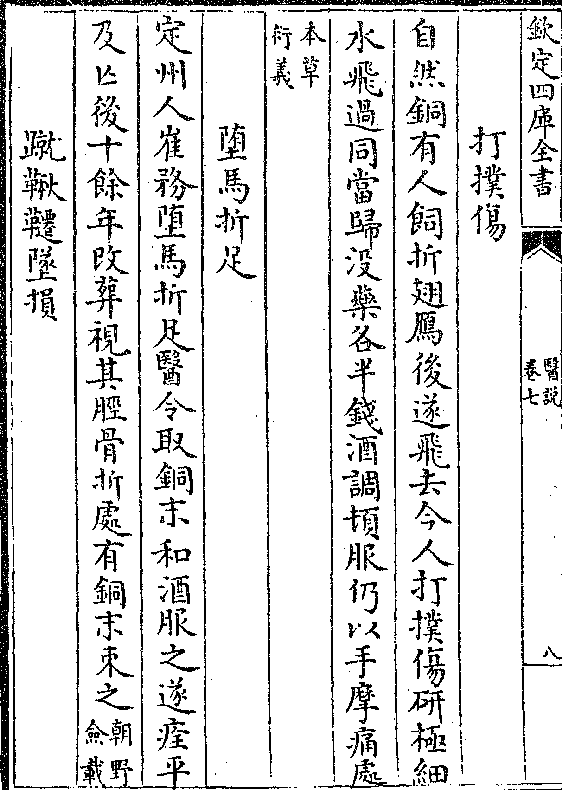 欽定四庫全書
醫説
卷七
八
打撲傷
自然銅有人飼折翅鴈後遂飛去今人打撲傷研極細
水飛過同當歸没藥各半錢酒調頓服仍以手摩痛處
本草
衍義
墮馬折足
定州人崔務墮馬折足醫令取銅末和酒服之遂痊平
及亡後十餘年改葬視其脛骨折處有銅末束之朝野
僉載
蹴鞦韆墜損